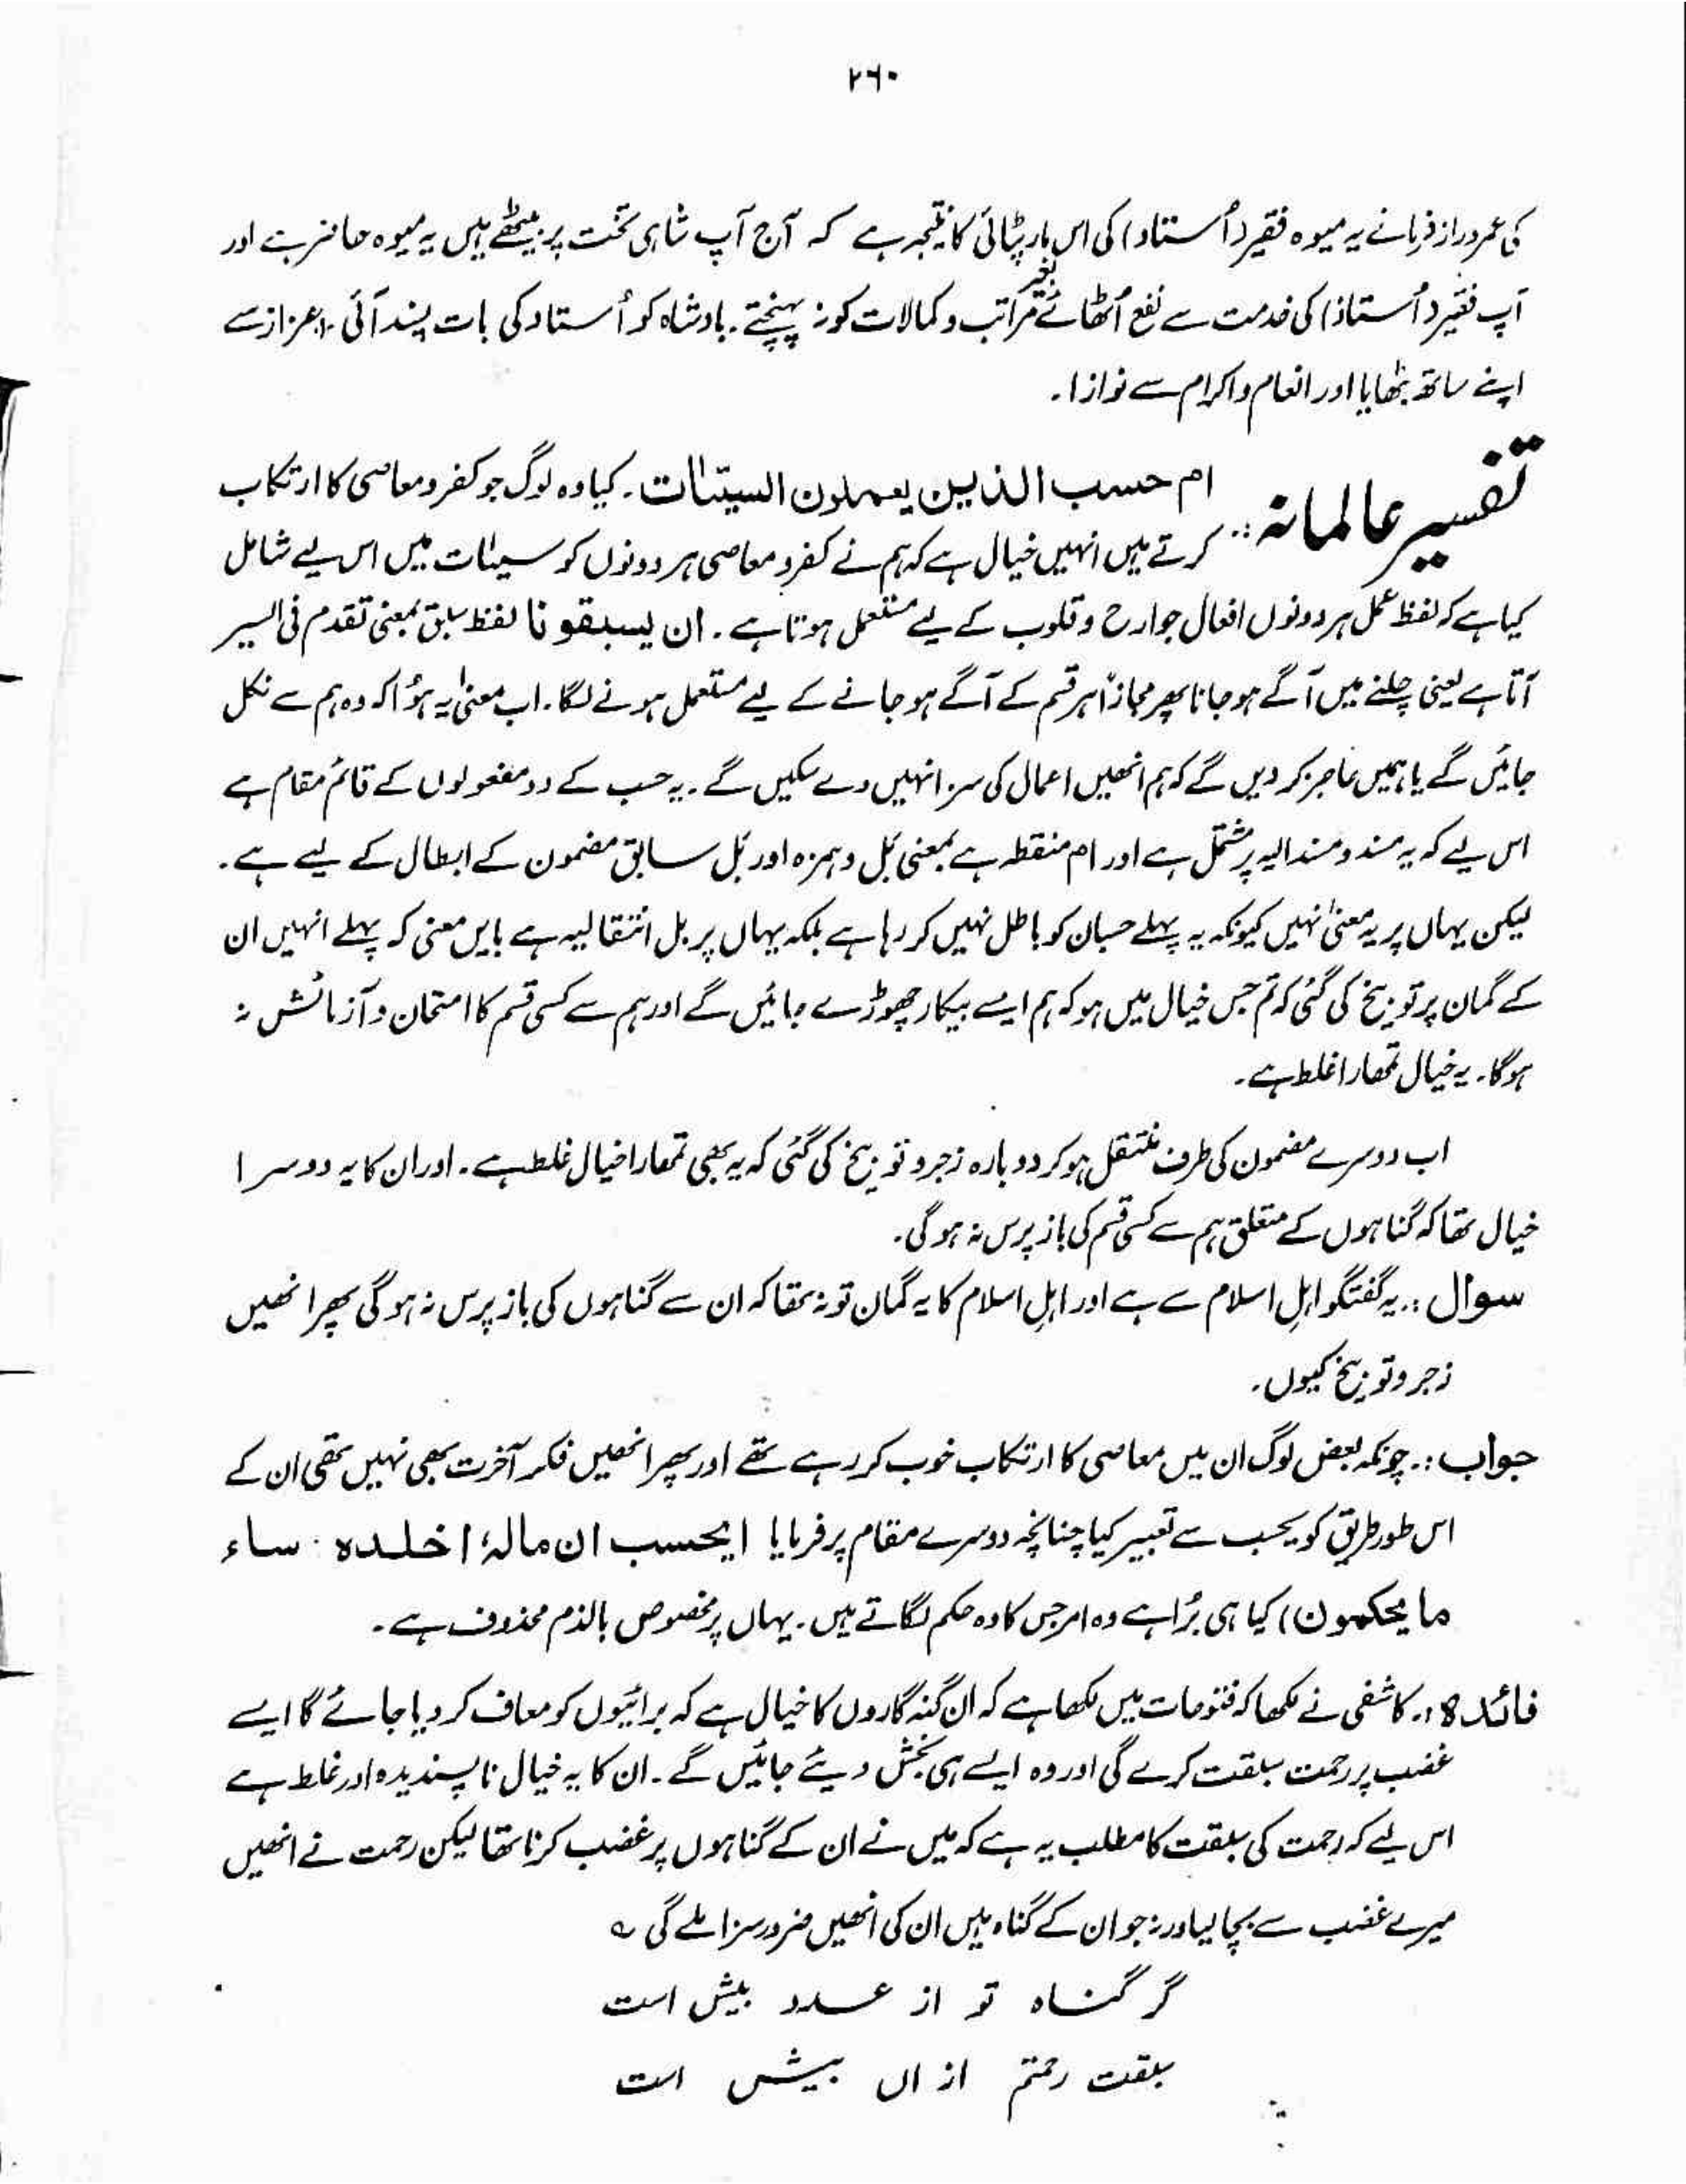 ۲۶۰
کی عمر دراز فرمانے یہ میوہ فقیر (اُستاد) کی اس مار پٹائی کا نتیجہ ہے کہ آج آپ شاہی تخت پر بیٹھے ہیں یہ میوہ حاضر ہے اور
آپ فقیر (اُستاذ) کی خدمت سے نفع اُٹھائے بغیر مراتب و کمالات کو نہ پہنچتے۔ بادشاہ کو اُستاد کی بات پسند آئی۔ اعزاز سے
اپنے ساتھ بٹھایا اور انعام واکرام سے نوازا۔
تفسیر عالمانہ :۔ ام حسب الذین یعملون السیّئات۔ کیا وہ لوگ جو کفر و معاصی کا ارتکاب
کرتے ہیں انہیں خیال ہے کہ ہم نے کفر و معاصی ہر دونوں کو سیئات میں اس لیے شامل
کیا ہے کہ لفظ عمل ہر دونوں افعال جوارح و قلوب کے لیے مستعمل ہوتا ہے۔ ان یسبقونا لفظ سبق بمعنی تقدم فی السیر
آتا ہے یعنی چلنے میں آگے ہوجانا پھر مجازاً ہر قسم کے آگے ہو جانے کے لیے مستعمل ہونے لگا۔ اب معنیٰ یہ ہؤا کہ وہ ہم سے نکل
جائیں گے یا ہمیں عاجز کر دیں گے کہ ہم انھیں اعمال کی سزا نہیں دے سکیں گے۔ یہ حسب کے دو مفعولوں کے قائم مقام ہے
اس لیے کہ یہ مسند و مسند الیہ پر مشتمل ہے اور ام منقطہ ہے بمعنی بَل و ہمزہ اور بَل سابق مضمون کے ابطال کے لیے ہے۔
لیکن یہاں پر یہ معنیٰ نہیں کیونکہ یہ پہلے حسبان کو باطل نہیں کر رہا ہے بلکہ یہاں پر بل انتقالیہ ہے بایں معنی کہ پہلے انہیں ان
کے گمان پر توبیخ کی گئی کہ تم جس خیال میں ہو کہ ہم ایسے بیکار چھوڑے جائیں گے اور ہم سے کسی قسم کا امتحان و آزمائش نہ
ہوگا۔ یہ خیال تمھارا غلط ہے۔
اب دوسرے مضمون کی طرف منتقل ہو کر دوبارہ زجر و توبیخ کی گئی کہ یہ بھی تمھارا خیال غلط ہے۔ اور ان کا یہ دوسرا
خیال تھا کہ گناہوں کے متعلق ہم سے کسی قسم کی باز پرس نہ ہو گی۔
سوال :۔ یہ گفتگو اہلِ اسلام سے ہے اور اہلِ اسلام کا یہ گمان تو نہ تھا کہ ان سے گناہوں کی باز پرس نہ ہو گی پھر انھیں
زجر و توبیخ کیوں۔
جواب :۔ چونکہ بعض لوگ ان میں معاصی کا ارتکاب خوب کر رہے تھے اور پھر انھیں فکر آخرت بھی نہیں تھی ان کے
اس طور طریق کو یحسب سے تعبیر کیا چنانچہ دوسرے مقام پر فرمایا ایحسب ان مالہٗ اخلدہ۔ ساء
ما یحکمون) کیا ہی بُرا ہے وہ امر جس کا وہ حکم لگاتے ہیں۔ یہاں پر مخصوص بالذم محذوف ہے۔
فائدہ :۔ کاشفی نے لکھا کہ فتوحات میں لکھا ہے کہ ان گنہگاروں کا خیال ہے کہ برائیوں کو معاف کر دیا جائے گا ایسے
غضب پر رحمت سبقت کرے گی اور وہ ایسے ہی بخش دیئے جائیں گے۔ ان کا یہ خیال ناپسندیدہ اور غلط ہے
اس لیے کہ رحمت کی سبقت کا مطلب یہ ہے کہ میں نے ان کے گناہوں پر غضب کرنا تھا لیکن رحمت نے انھیں
میرے غضب سے بچا لیا ورنہ جو ان کے گناہ ہیں ان کی انھیں ضرور سزا ملے گی ؎
گر گناہ تو از عدد بیش است
سبقت رحمتم ازاں بیش است